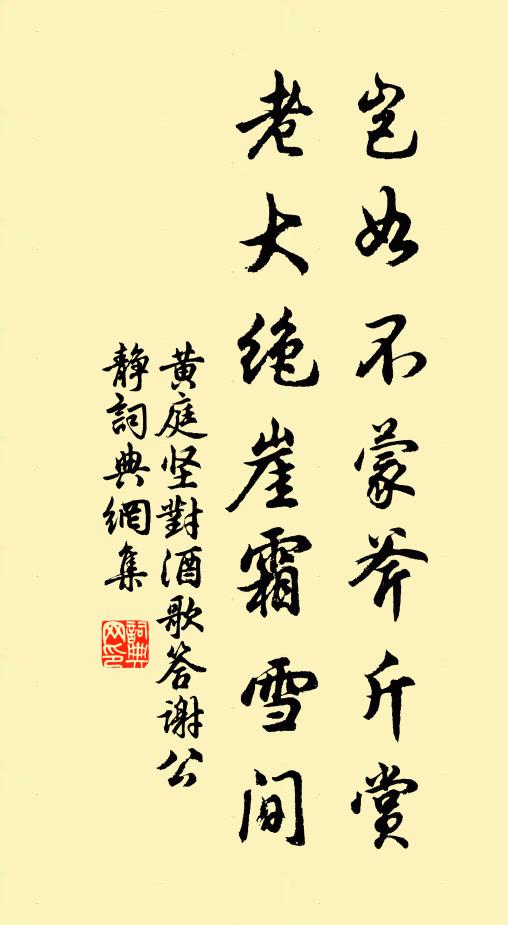 岂如不蒙斧斤赏
老大绝崖霜雪间
黄庭坚對酒歌答谢公
靜詞典網集
詞典网印